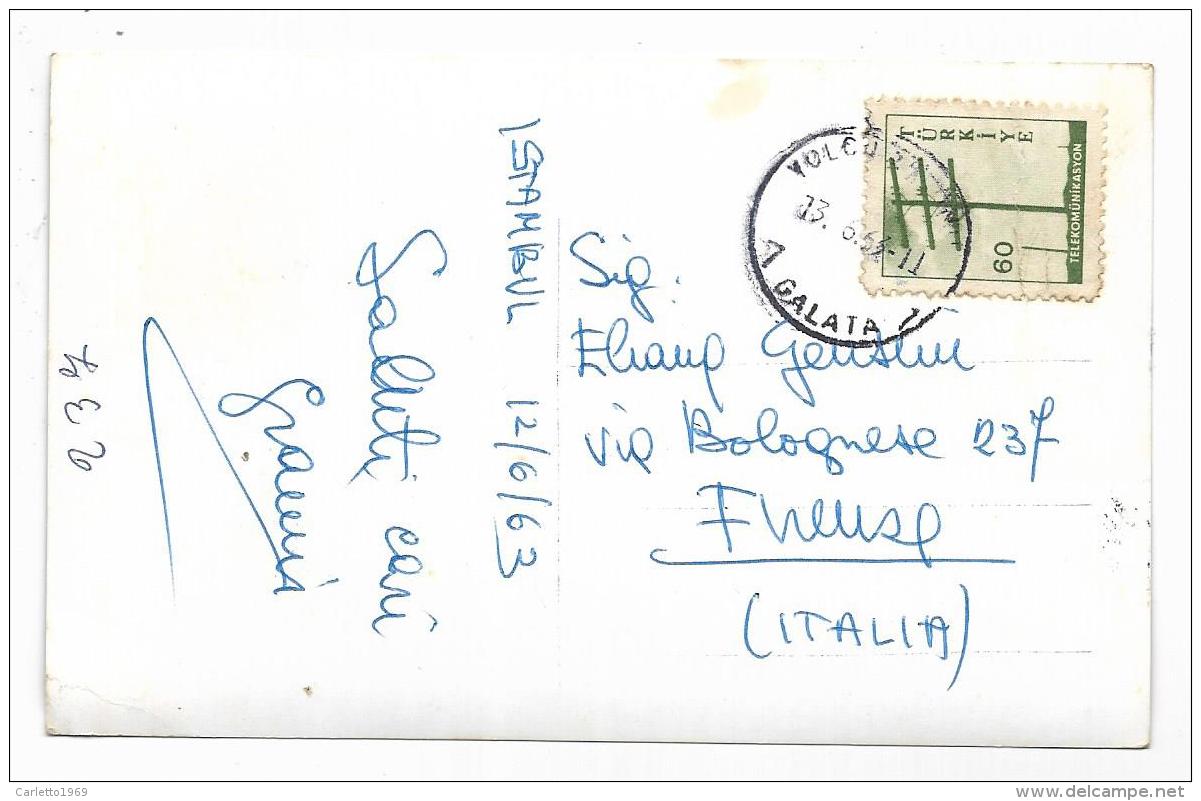 ISTAMBUL 12/6/63
Saluti cari
Sig.
via Bolognese 237
Firenze
(ITALIA)
TÜRKİYE
60
TELEKOMÜNİKASYON
YOLCU
13.6.63-11
GALATA
Carletto1969
www.delcampe.net